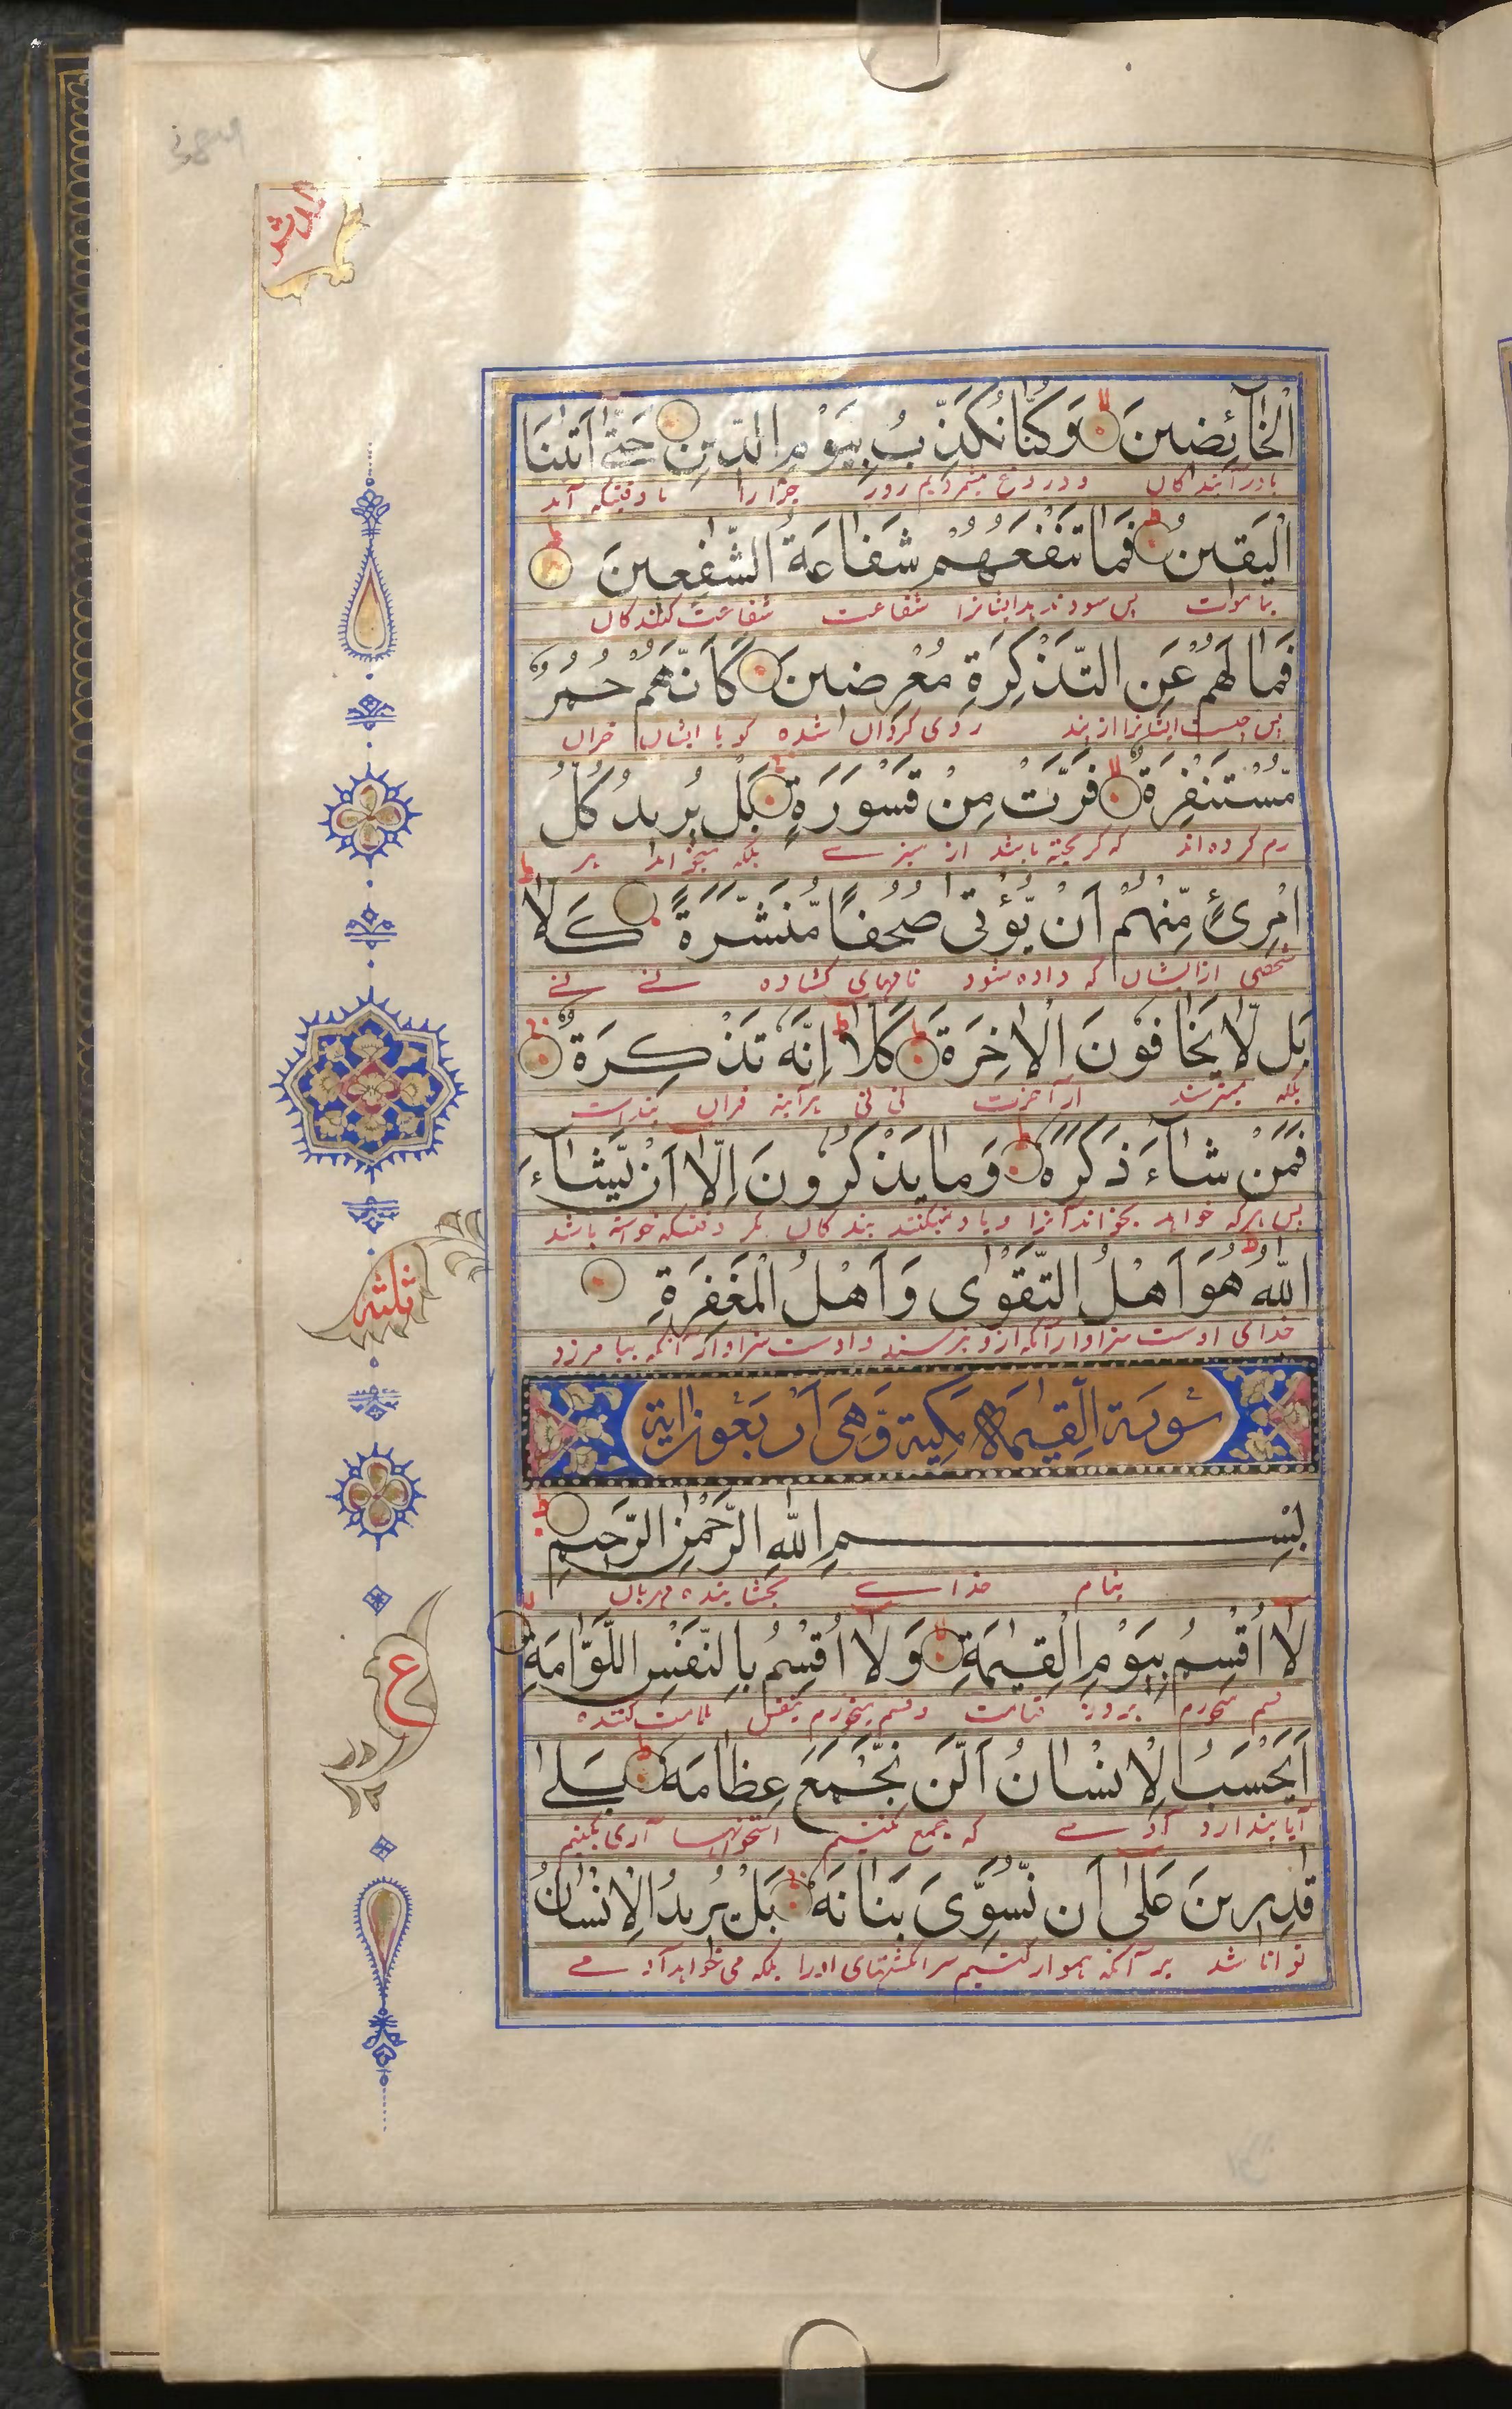 الْخَآئِضِينَ وَكُنَّا نُكَذِّبُ بِيَوْمِ الدِّينِ حَتّٰٓى اَتٰىنَا
الْيَقِينُ فَمَا تَنْفَعُهُمْ شَفَاعَةُ الشّٰفِعِينَ
پس سود ندهد ایشانرا شفاعت شفاعت کنندگان
فَمَا لَهُمْ عَنِ التَّذْكِرَةِ مُعْرِضِينَ كَاَنَّهُمْ حُمُرٌ
پس چیست ایشانرا از پند روی گردان شده گویا ایشان خران
مُّسْتَنْفِرَةٌ فَرَّتْ مِنْ قَسْوَرَةٍ بَلْ يُرِيدُ كُلُّ
رم کرده اند که گریخته باشد از
امْرِئٍ مِّنْهُمْ اَنْ يُّؤْتٰى صُحُفًا مُّنَشَّرَةً كَلَّا
شخصی از ایشان که داده شود نامهای گشاده نے نے
بَلْ لَّا يَخَافُونَ الْاٰخِرَةَ كَلَّا اِنَّهٗ تَذْكِرَةٌ
از آخرت نی نی هرآینه قران پنداست
فَمَنْ شَآءَ ذَكَرَهٗ وَمَا يَذْكُرُونَ اِلَّآ اَنْ يَّشَآءَ
پس هرکه خواهد بخواند آنرا و یاد نمیکنند بندگان مگر وقتیکه خواسته باشد
اللّٰهُ هُوَ اَهْلُ التَّقْوٰى وَاَهْلُ الْمَغْفِرَةِ
خدای اوست سزاوار آنکه ازو بترسند و اوست سزاوار آنکه بیامرزد
سُورَةُ الْقِيٰمَةِ مَكِّيَّةٌ وَّهِيَ اَرْبَعُونَ اٰيَةً
بِسْمِ اللّٰهِ الرَّحْمٰنِ الرَّحِيمِ
بنام خداے بخشاینده مهربان
لَآ اُقْسِمُ بِيَوْمِ الْقِيٰمَةِ وَلَآ اُقْسِمُ بِالنَّفْسِ اللَّوَّامَةِ
قسم میخورم بروز قیامت و قسم میخورم بنفس ملامت کننده
اَيَحْسَبُ الْاِنْسَانُ اَلَّنْ نَّجْمَعَ عِظَامَهٗ بَلٰى
آیا پندارد آدمے که جمع نکنیم استخوانهاء آری بکنیم
قٰدِرِينَ عَلٰٓى اَنْ نُّسَوِّيَ بَنَانَهٗ بَلْ يُرِيدُ الْاِنْسَانُ
توانا شد بر آنکه هموار کنیم سرانگشتهای اورا بلکه می خواهد آدمے
ثلثه
ع